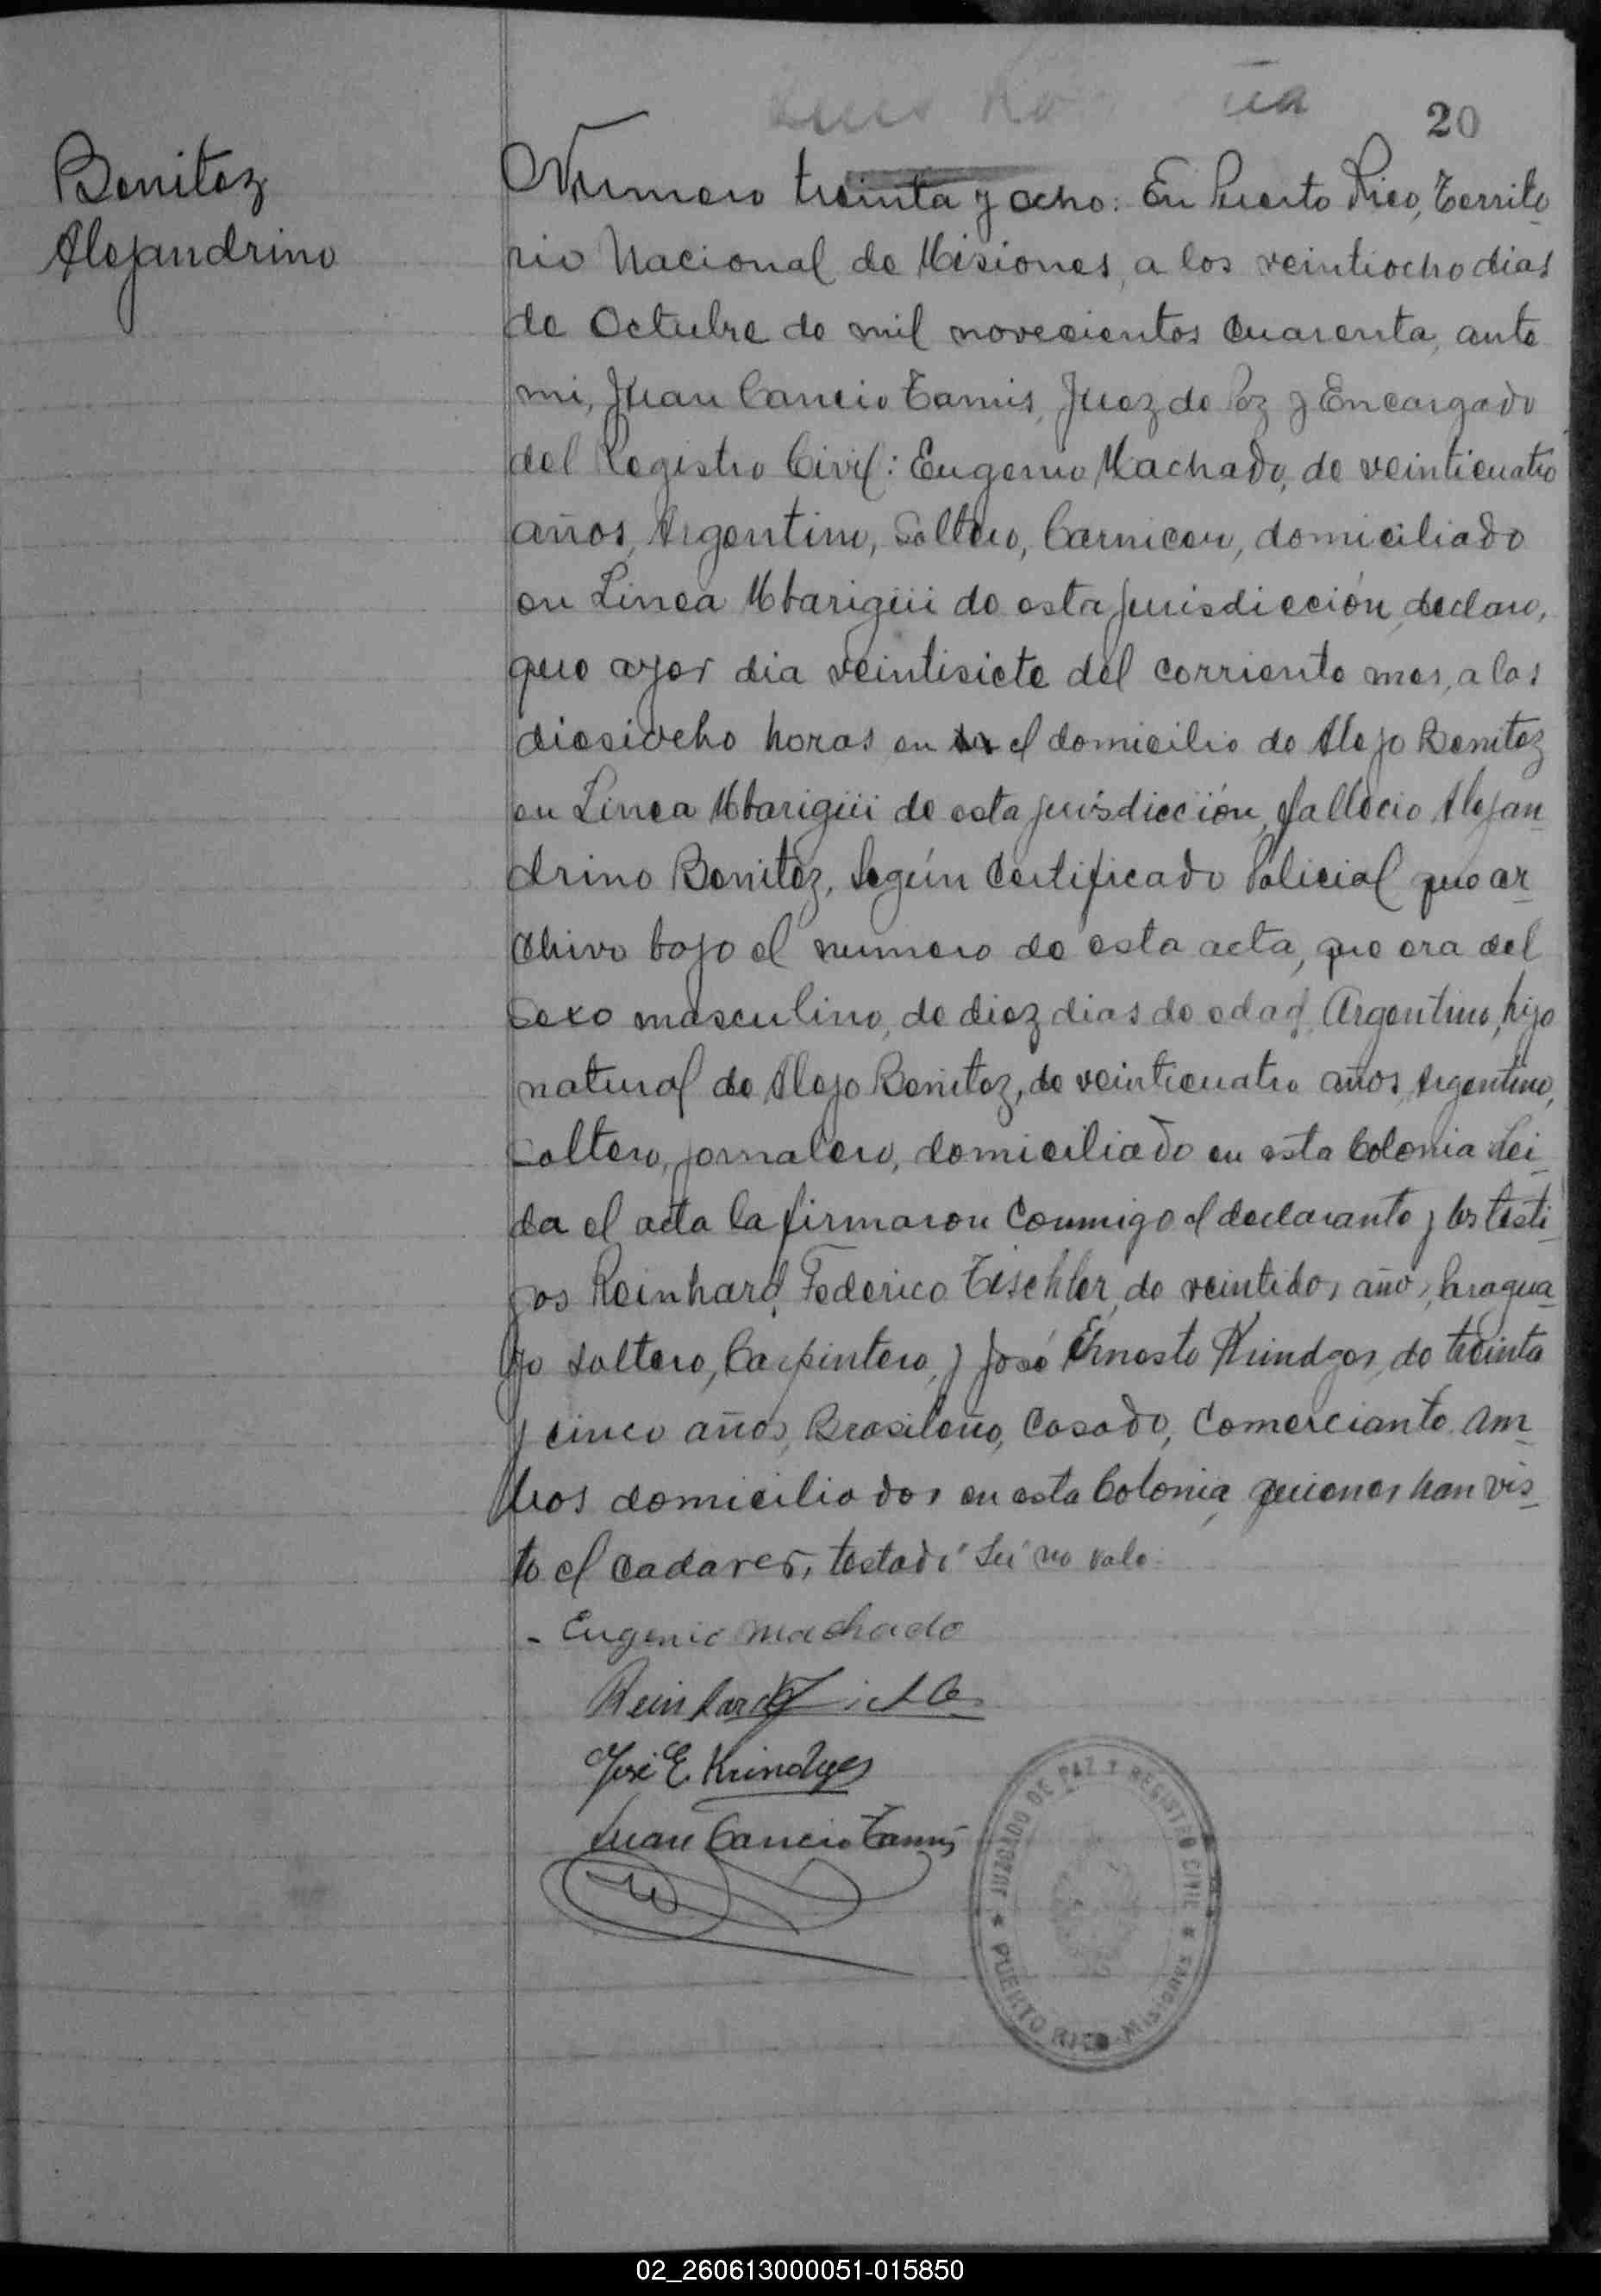 20
Benitez
Alejandrino
Numero treinta y ocho: En Puerto Rico, Territo-
rio Nacional de Misiones, a los veintiocho dias
de Octubre de mil novecientos cuarenta, ante
mi, Juan Cancio Tamis, Juez de Paz y Encargado
del Registro Civil: Eugenio Machado, de veinticuatro
años, Argentino, Soltero, Carnicero, domiciliado
en Linea Mbarigüi de esta jurisdicción, declaro,
que ayer dia veintisiete del corriente mes, a las
diesiocho horas en su el domicilio de Alejo Benitez
en Linea Mbarigüi de esta jurisdicción, fallecio Alejan-
drino Benitez, Según Certificado Policial que ar-
chivo bajo el numero de esta acta, que era del
Sexo masculino, de diez dias de edad, Argentino, hijo
natural de Alejo Benitez, de veinticuatro años, Argentino,
Soltero, jornalero, domiciliado en esta Colonia Lei-
da el acta la firmaron Conmigo el declarante y los testi-
gos Reinhard Federico Tischler, de veintidos años, Paragua-
yo soltero, Carpintero, y José Ernesto Krindges, de treinta
y cinco años, Brasileño, Casado, Comerciante. Am-
bos domiciliados en esta Colonia, quienes han vis-
to el cadaver, testado su no vale.
- Eugenio Machado
Reinhard
José E. Krindges
Juan Cancio Tamis
JUZGADO DE PAZ Y REGISTRO CIVIL
PUERTO RICO - MISIONES
02_260613000051-015850